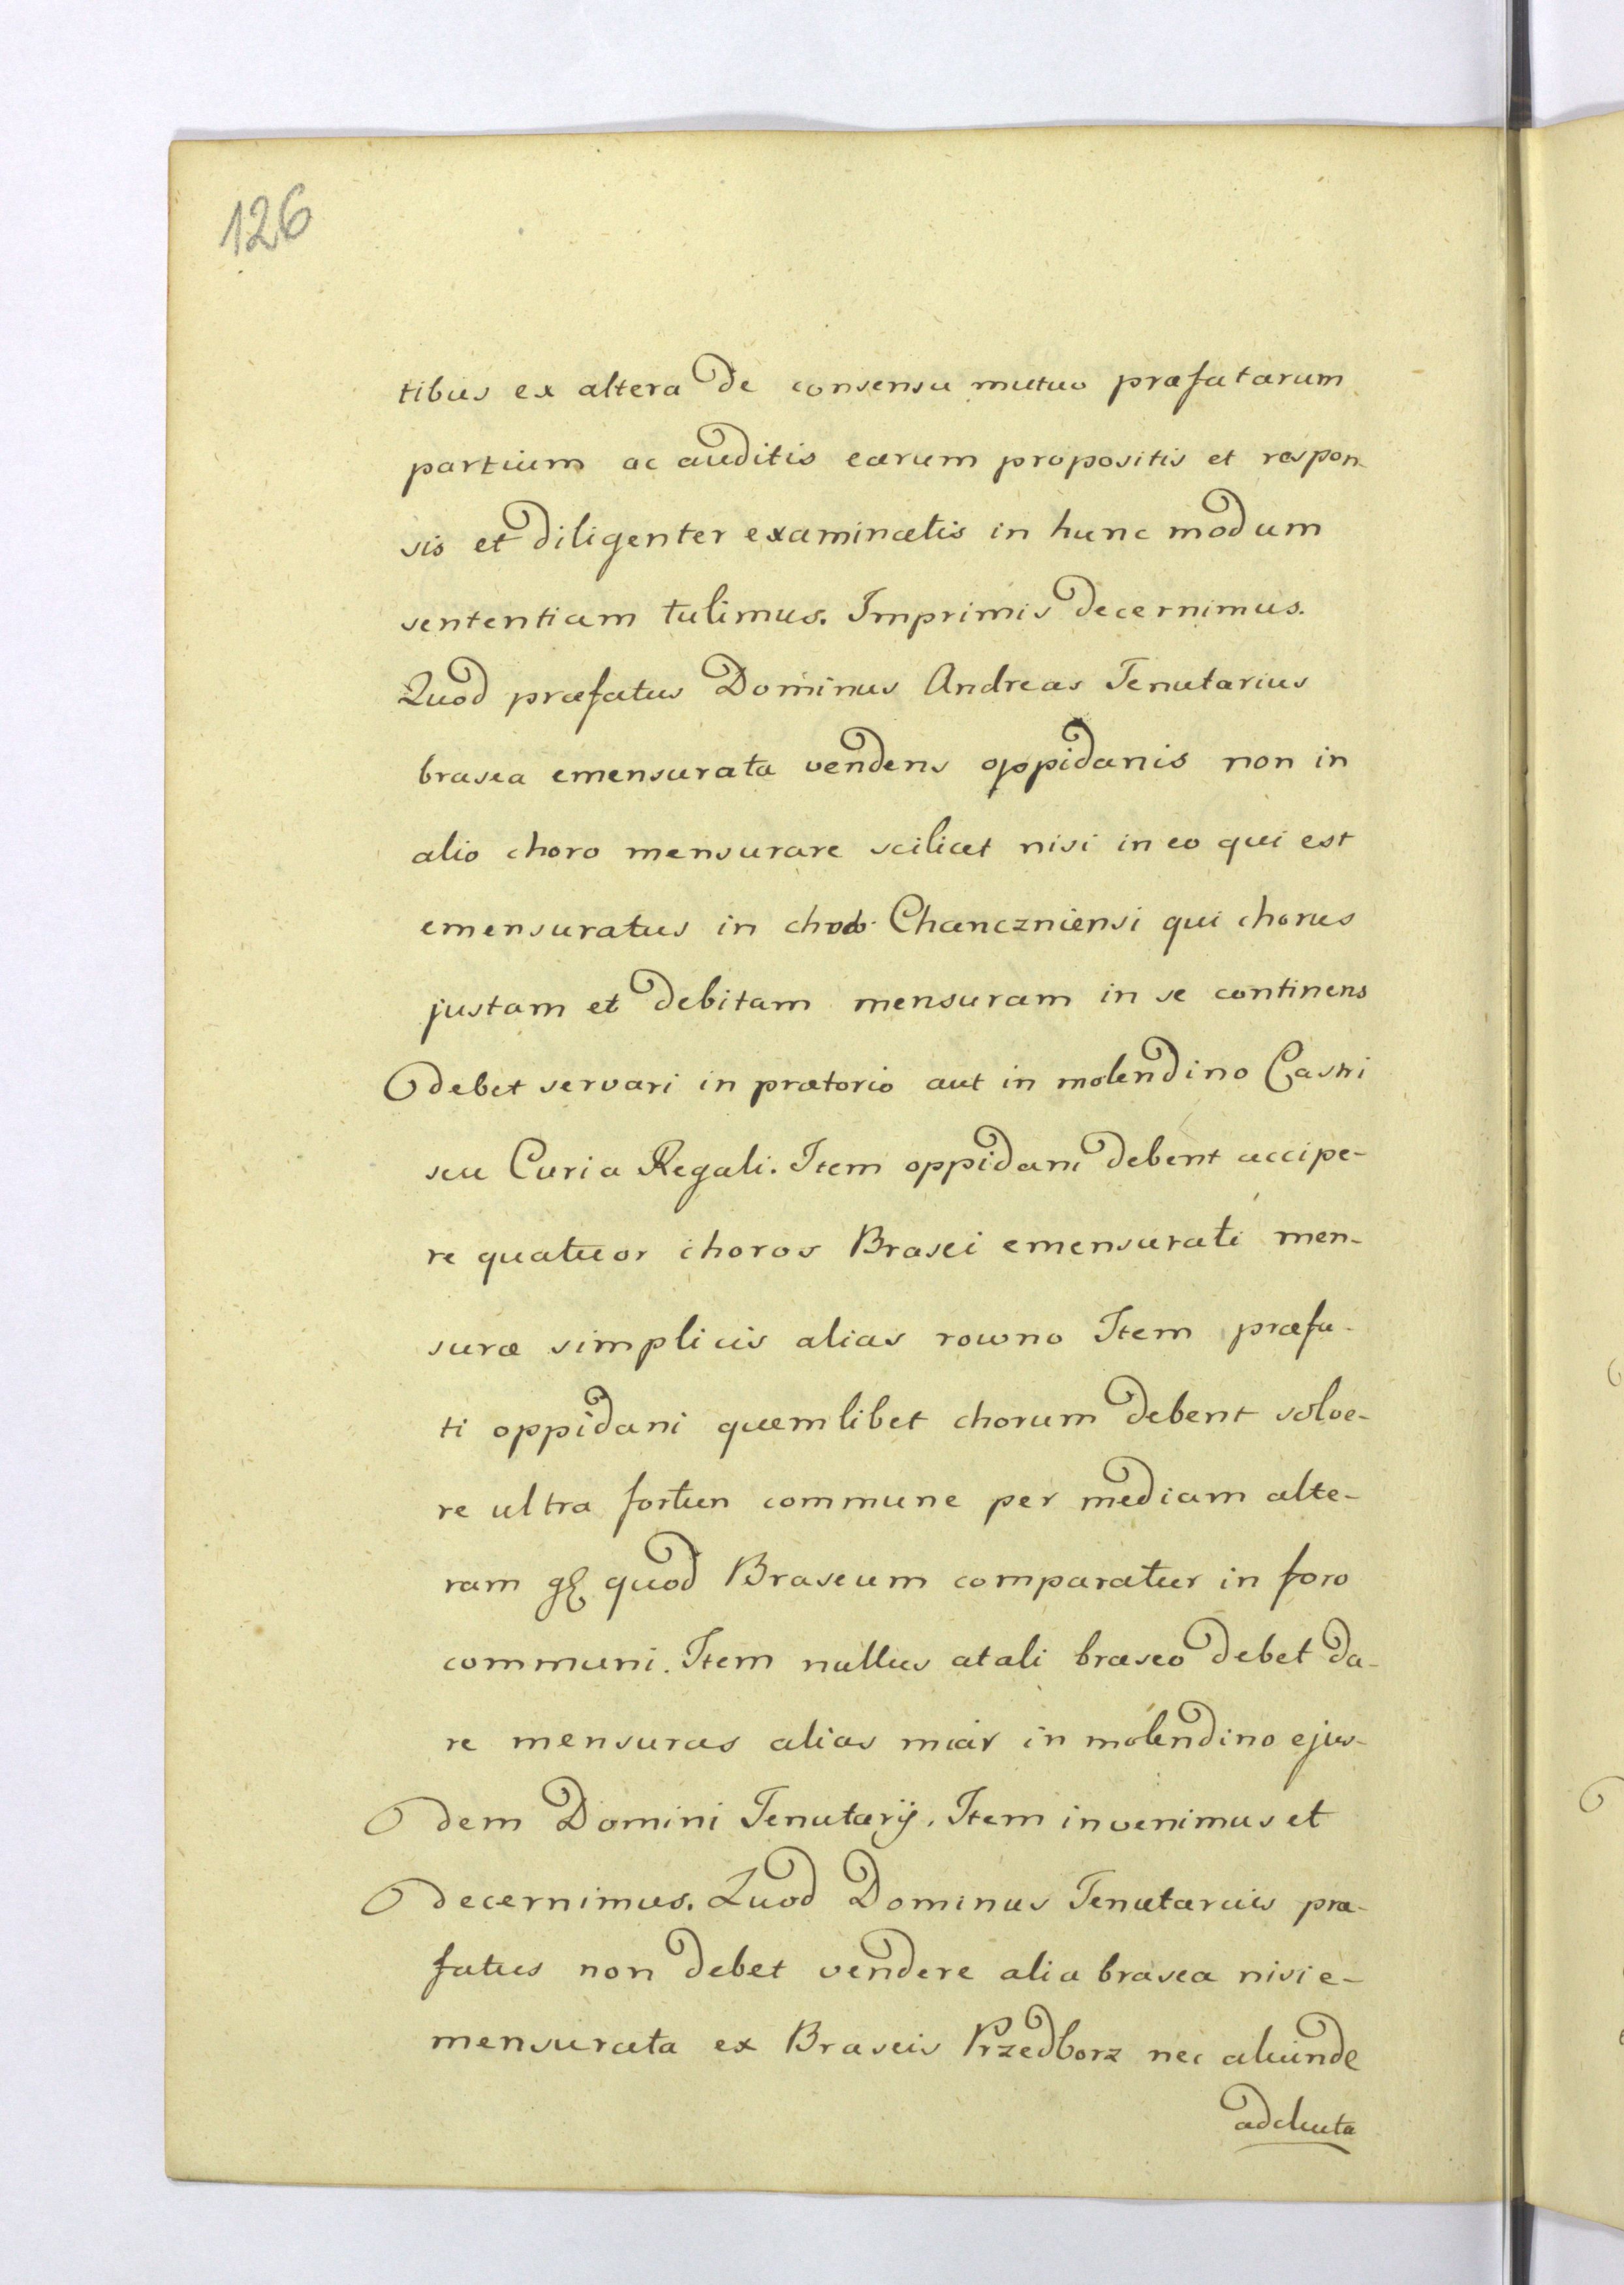 126
tibus ex altera de consensu mutuo præfatarum
partium ac auditis earum propositis et respon-
sis et diligenter examinatis in hunc modum
sententiam tulimus. Imprimis decernimus.
Quod præfatus Dominus Andreas Tenutarius
brasea emensurata vendens oppidanis non in
alio choro mensurare scilicet nisi in eo qui est
emensuratus in choro Chanczniensi qui chorus
justam et debitam mensuram in se continens
debet servari in prætorio aut in molendino Castri
seu Curia Regali. Item oppidani debent accipe-
re quatuor choros Brasei emensurati men-
suræ simplicis alias rowno Item præfa-
ti oppidani quemlibet chorum debent solve-
re ultra commune per mediam alte-
ram quod Braseum comparatur in foro
communi. Item nullus a tali braseo debet da-
re mensuras alias miar in molendino ejus-
dem Domini Tenutarij. Item invenimus et
decernimus. Quod Dominus Tenutarius præ-
fatus non debet vendere alia brasea nisi e-
mensurata ex Braseis Przedborz nec aliunde
adducta